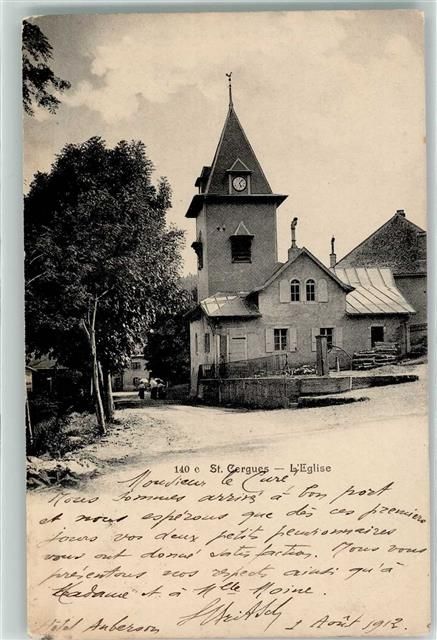 140 c St. Cergues — L'Eglise
Monsieur le Curé
Nous sommes arrivé à bon port
et nous espérons que dès ces premiers
jours vos deux petits pensionnaires
vous ont donné satisfaction. Nous vous
présentons nos respects ainsi qu'à
Madame et à Mlle Moine.
Hôtel Auberson 1 Août 1912.